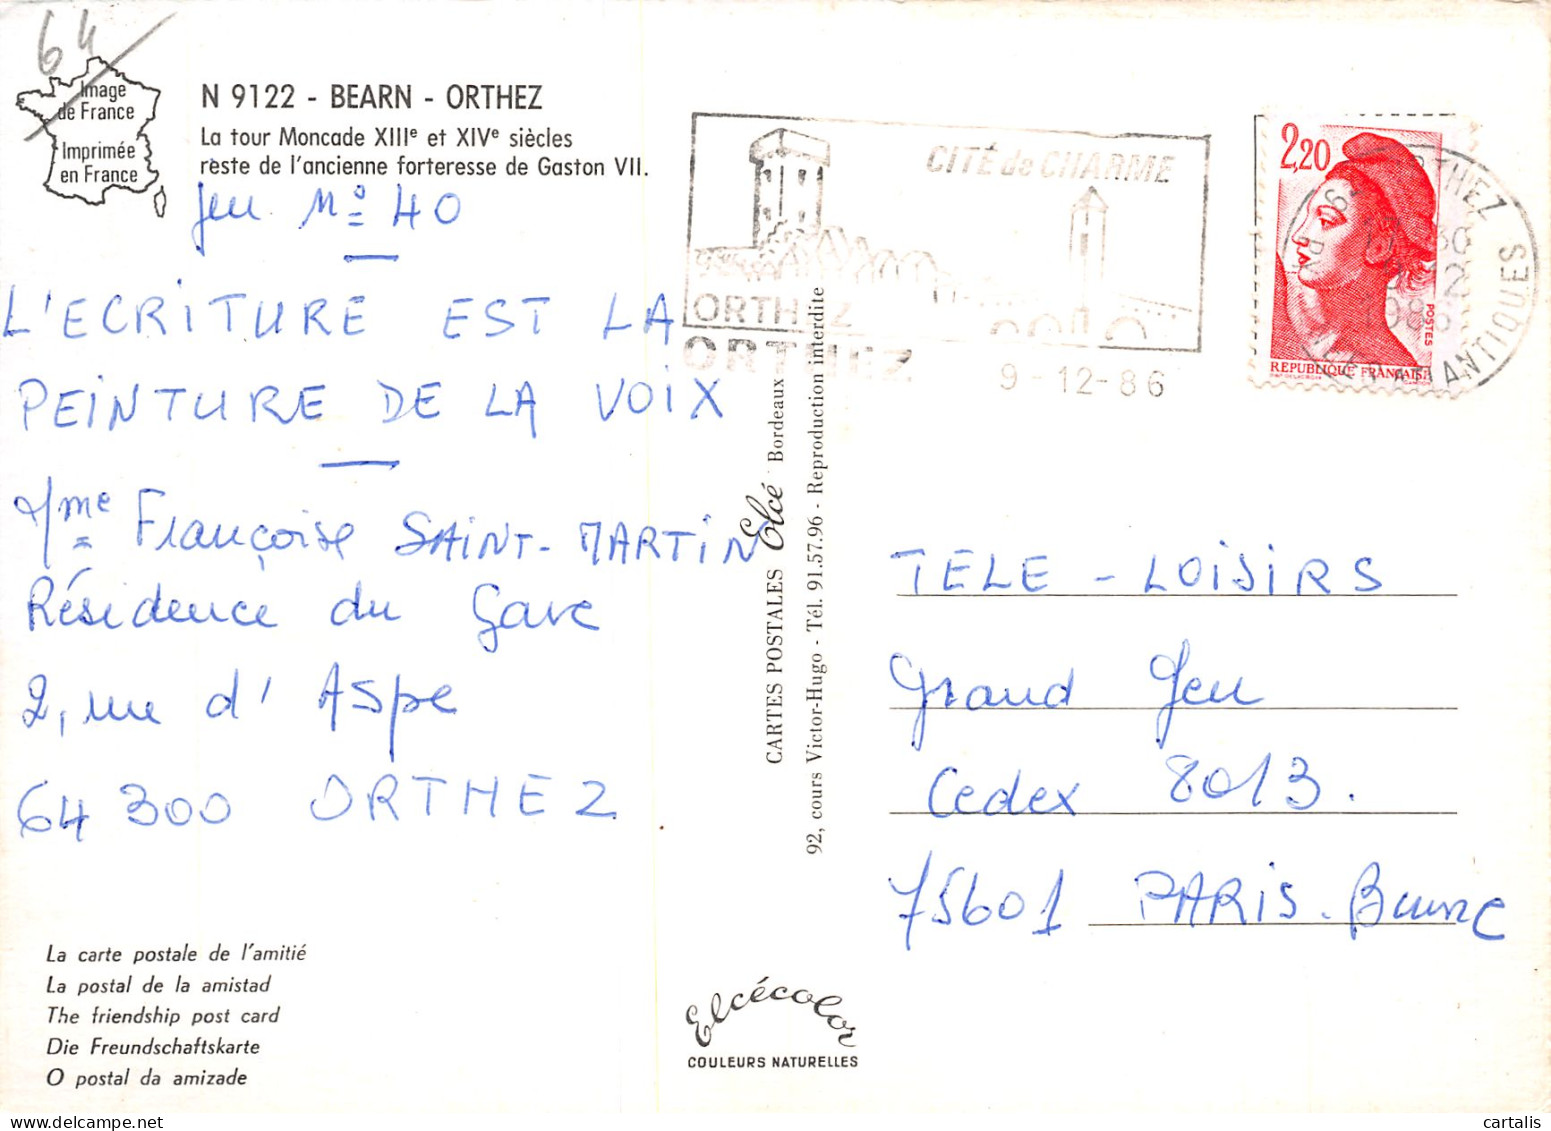 64
Image
de France
Imprimée
en France
N 9122 - BEARN - ORTHEZ
La tour Moncade XIIIe et XIVe siècles
reste de l'ancienne forteresse de Gaston VII.
Jeu Nº 40
L'ECRITURE EST LA
PEINTURE DE LA VOIX
Mme Françoise SAINT-MARTIN
Résidence du Gave
2, rue d'Aspe
64 300 ORTHEZ
La carte postale de l'amitié
La postal de la amistad
The friendship post card
Die Freundschaftskarte
O postal da amizade
CARTES POSTALES Elcé Bordeaux
92, cours Victor-Hugo - Tél. 91.57.96 - Reproduction interdite
Elcécolor
COULEURS NATURELLES
CITÉ de CHARME
ORTHEZ
ORTHEZ
9-12-86
2,20
POSTES
REPUBLIQUE FRANÇAISE
64 ORTHEZ
ATLANTIQUES
TELE-LOISIRS
Grand Jeu
Cedex 8013.
75601 PARIS.
cartalis